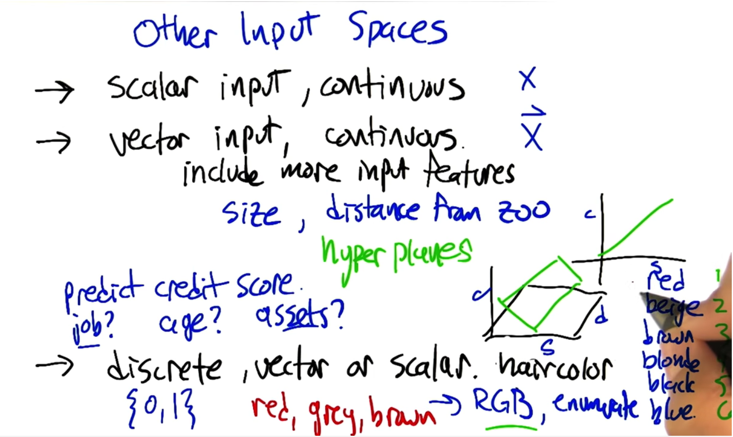 Other Input Spaces
→ scalar input, continuous x
→ vector input, continuous. x
include more input features
size, distance from zoo
hyperplanes
c
s
c
d
s
predict credit score.
job? age? assets?
→ discrete, vector or scalar. haircolor
{0,1} red, grey, brown → RGB, enumerate
red 1
beige 2
brown 3
blonde
black 5
blue 6